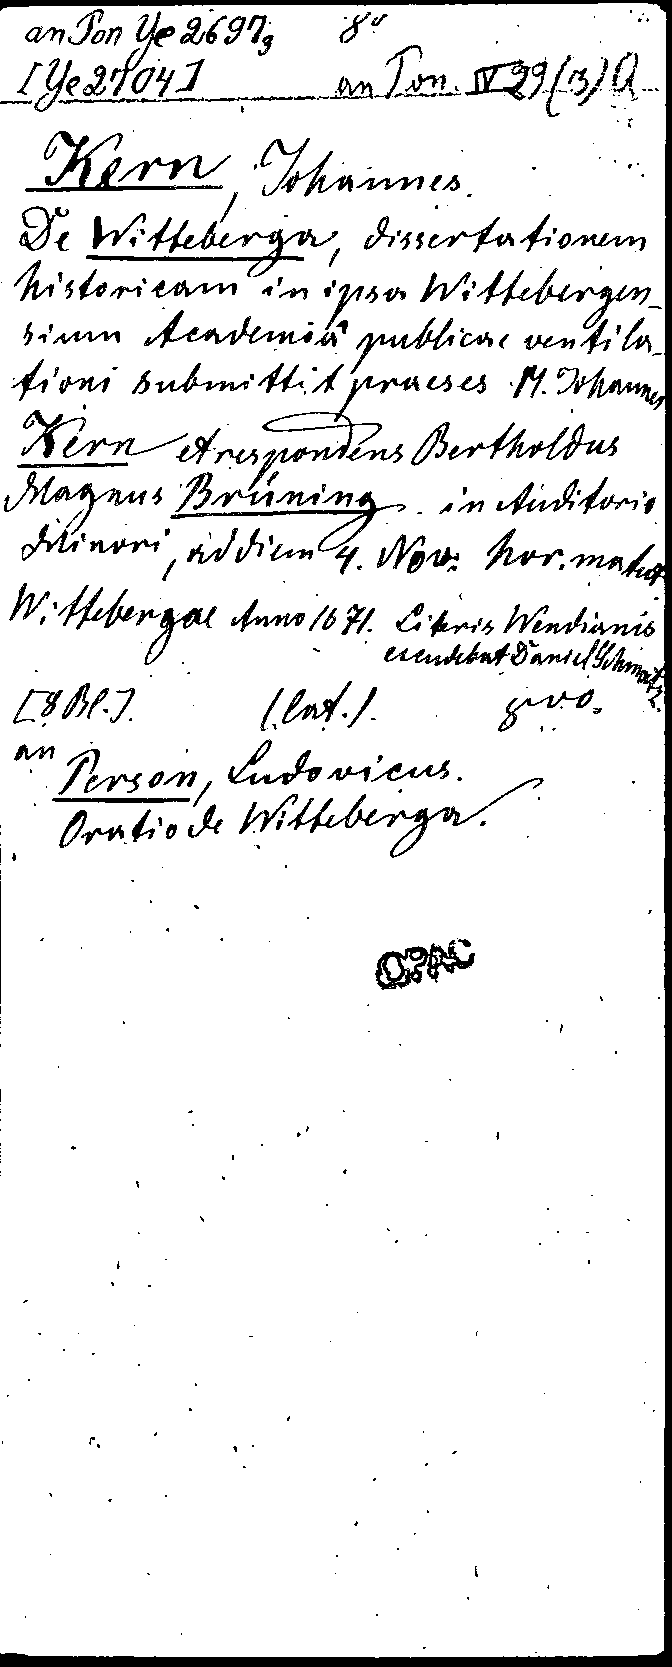 an Pon Ye 2697, 8°
[Ye 2704] an Pon. IV 29 (13) Q
Kern, Johannes.
De Witteberga, dissertationem
historicam in ipsa Wittebergen-
sium Academiâ publicae ventila-
tioni submittit praeses M. Johannes
Kern et respondens Bertholdus
Magnus Brüning in Auditorio
Minori, ad diem 4. Nov: hor. matut.
Wittebergae Anno 1671. Literis Wendianis
excudebat Daniel Schmatz.
[8 Bl.]. (lat.). gvo.
an
Person, Ludovicus.
Oratio de Witteberga.
OPAC